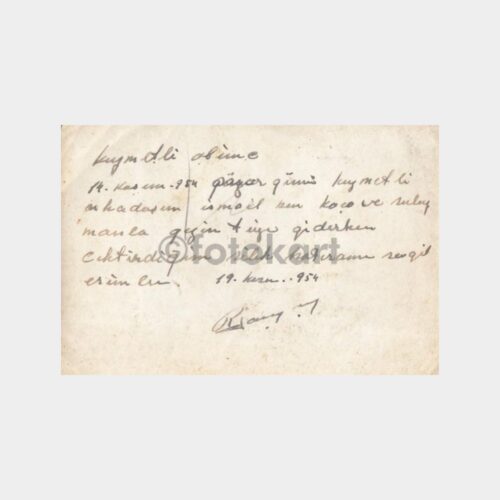 kıymetli abime
14. kasım. 954 pazar günü kıymetli
arkadaşım ismail ben koço ve
gezintiye giderken
çektirdiğim hatıramı
19. kasım. 954
©fotokart